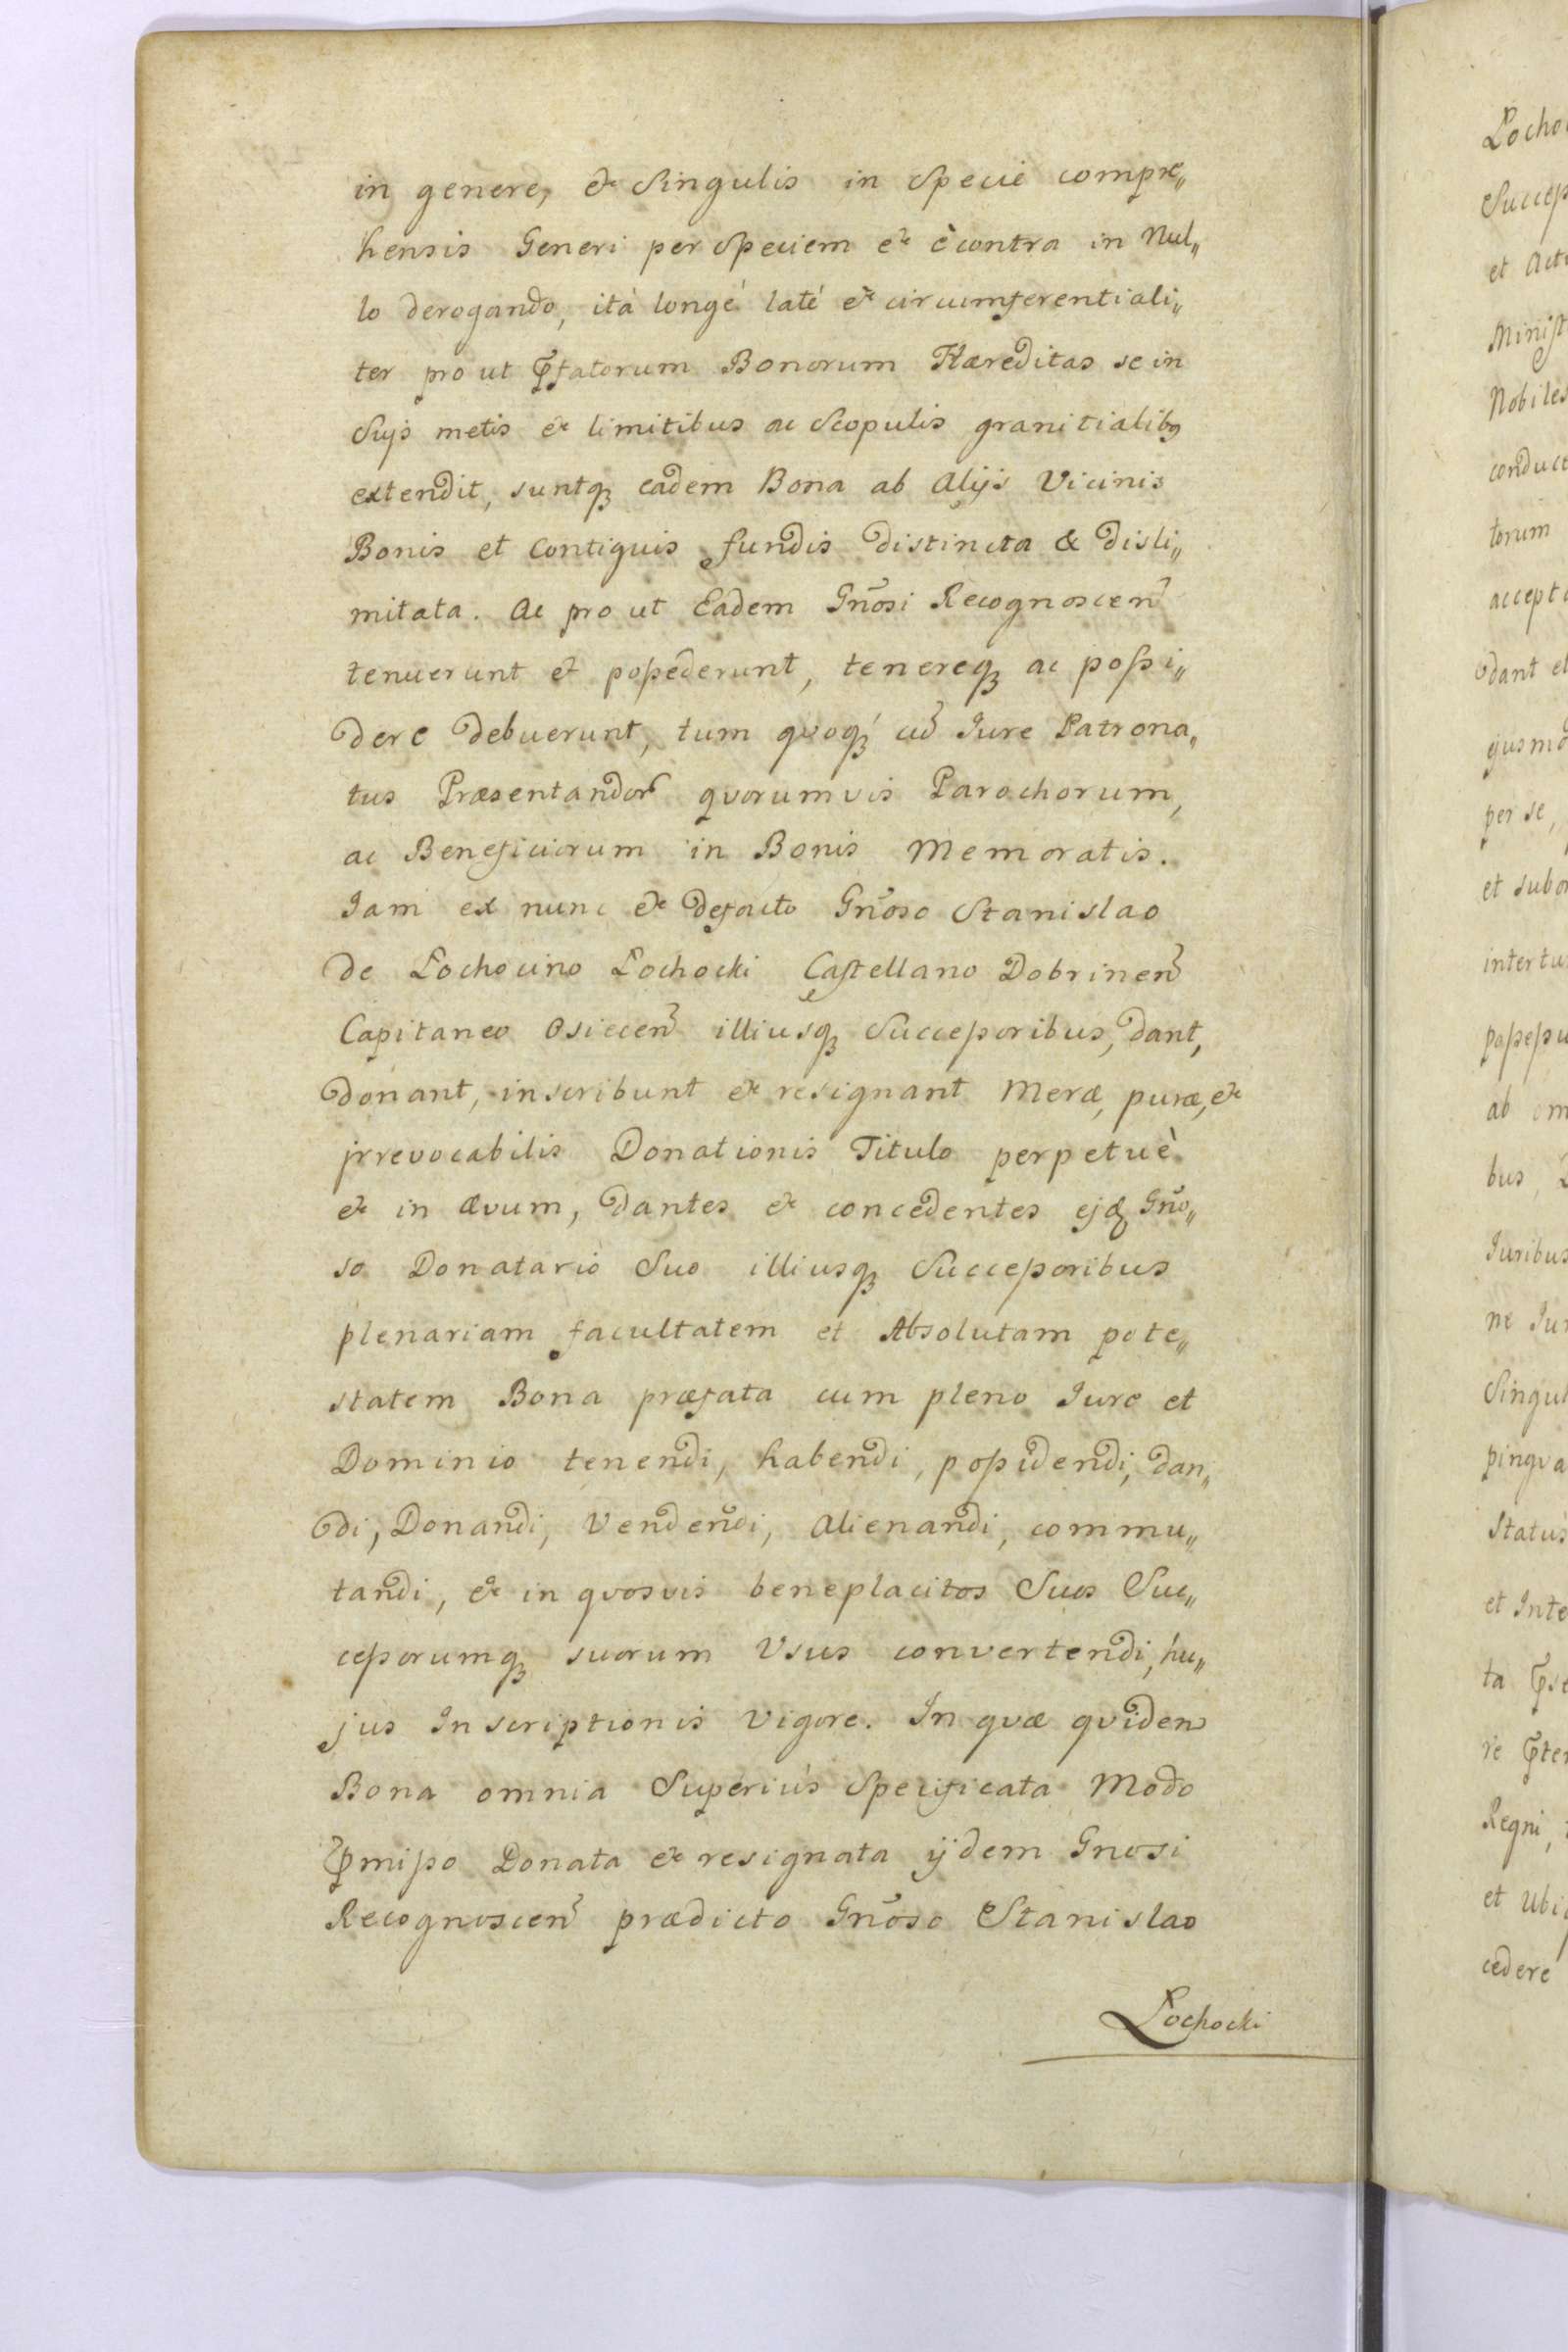 in genere, & Singulis in Specie compre„
hensis Generi per Speciem & è contra in Nul„
lo derogando, ità longé laté & circumferentiali„
ter pro ut Pfatorum Bonorum Hæreditas se in
Suÿs metis & limitibus ac Scopulis granitialibꝰ
extendit, suntqꝫ eadem Bona ab Alÿs Vicinis
Bonis et Contiguis fundis distincta & disli„
mitata. Ac pro ut Eadem Gnōsi Recognoscen̄
tenuerunt et poßederunt, tenereqꝫ ac poßi„
dere debuerunt, tum qvoqꝫ cū Iure Patrona„
tus Præsentandor̄ qvorumvis Parochorum,
ac Beneficiorum in Bonis Memoratis.
Iam ex nunc & defacto Gnōso Stanislao
de Łochocino Łochocki Castellano Dobrinen̄
Capitaneo Osiecen̄ illiusqꝫ Succeßoribus, dant,
donant, inscribunt & resignant Meræ, puræ, &
jrrevocabilis Donationis Titulo perpetuè
& in ævum, dantes & concedentes ejd Gnō„
so Donatario Suo illiusqꝫ Succeßoribus
plenariam facultatem et Absolutam pote„
statem Bona præfata cum pleno Iure et
Dominio tenendi, habendi, poßidendi, dan„
di, Donandi, Vendendi, Alienandi, commu„
tandi, & in qvosvis beneplacitos Suos Suc„
ceßorumqꝫ suorum Usus convertendi, hu„
jus Inscriptionis vigore. In qvæ qvidem
Bona omnia Superiùs Specificata Modo
Pmißo Donata & resignata ÿdem Gnosi
Recognoscen̄ prædicto Gnōso Stanislao
Łochocki
Łocho
Succeß
et Act
Minist
Nobiles
conduct
torum
accept
dant et
ejusmo
per se,
et subo
intertu
poßeßu
ab om
bus,
Iuribus
ne Iu
Singul
pinqva
Statûs
et Inte
ta
re
Regni,
et Ubi
cedere